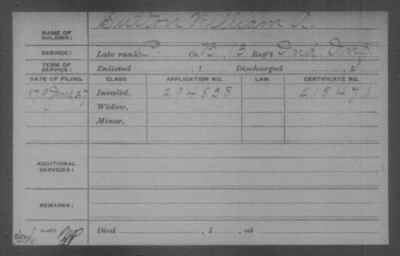 NAME OF SOLDIER: Sutton William A.
SERVICE: Late rank P. Co. B, 13 Reg't Ind. Inf.
TERM OF SERVICE: Enlisted , 1 Discharged , 1
DATE OF FILING. CLASS. APPLICATION NO. LAW. CERTIFICATE NO.
June 27 Invalid, 294838 218471
Widow,
Minor,
ADDITIONAL SERVICES:
REMARKS:
Died , 1 , at